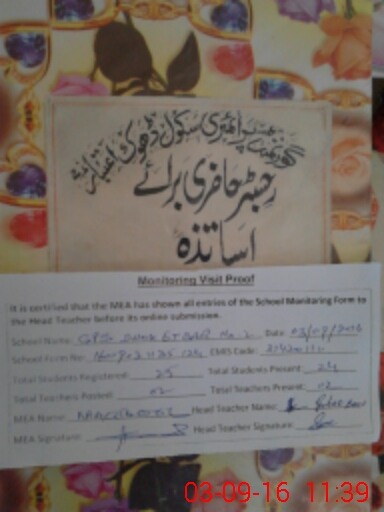 گورنمنٹ پرائمری سکول ڈھوک اعتبار
رجسٹر حاضری برائے
اساتذہ
Monitoring Visit Proof
It is certified that the MEA has shown all entries of the School Monitoring Form to
the Head Teacher before its online submission.
School Name: GPS No. 2 Date 03/09/2016
School Form No: EMIS Code:
Total Students Registered: 25 Total Students Present: 24
Total Teachers Posted: 02 Total Teachers Present: 02
MEA Name: Head Teacher Name:
MEA Signature: Head Teacher Signature:
03-09-16 11:39